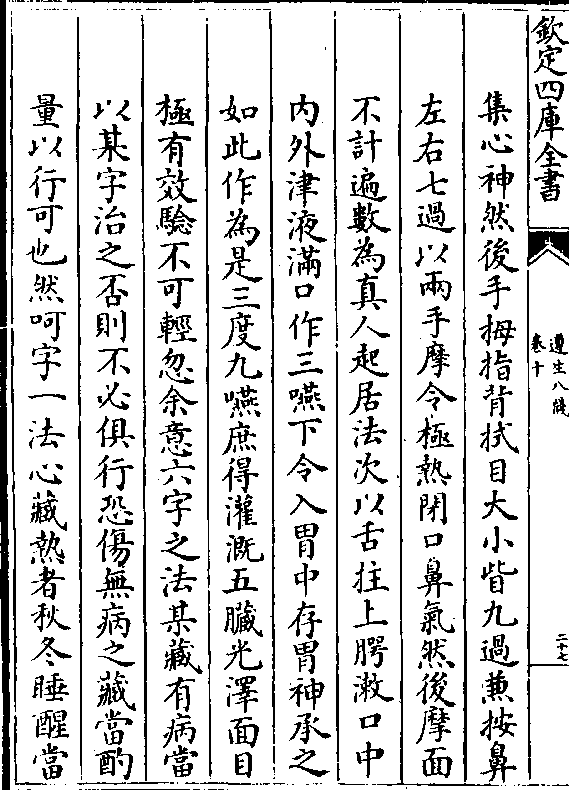 欽定四庫全書
遵生八牋
卷十
二十七
集心神然後手拇指背拭目大小眥九過兼按鼻
左右七過以兩手摩令極熱閉口鼻氣然後摩面
不計遍數為真人起居法次以舌拄上腭漱口中
內外津液滿口作三嚥下令入胃中存胃神承之
如此作為是三度九嚥庶得灌溉五臟光澤面目
極有效驗不可輕忽余意六字之法某藏有病當
以某字治之否則不必俱行恐傷無病之藏當酌
量以行可也然呵字一法心藏熱者秋冬睡醒當